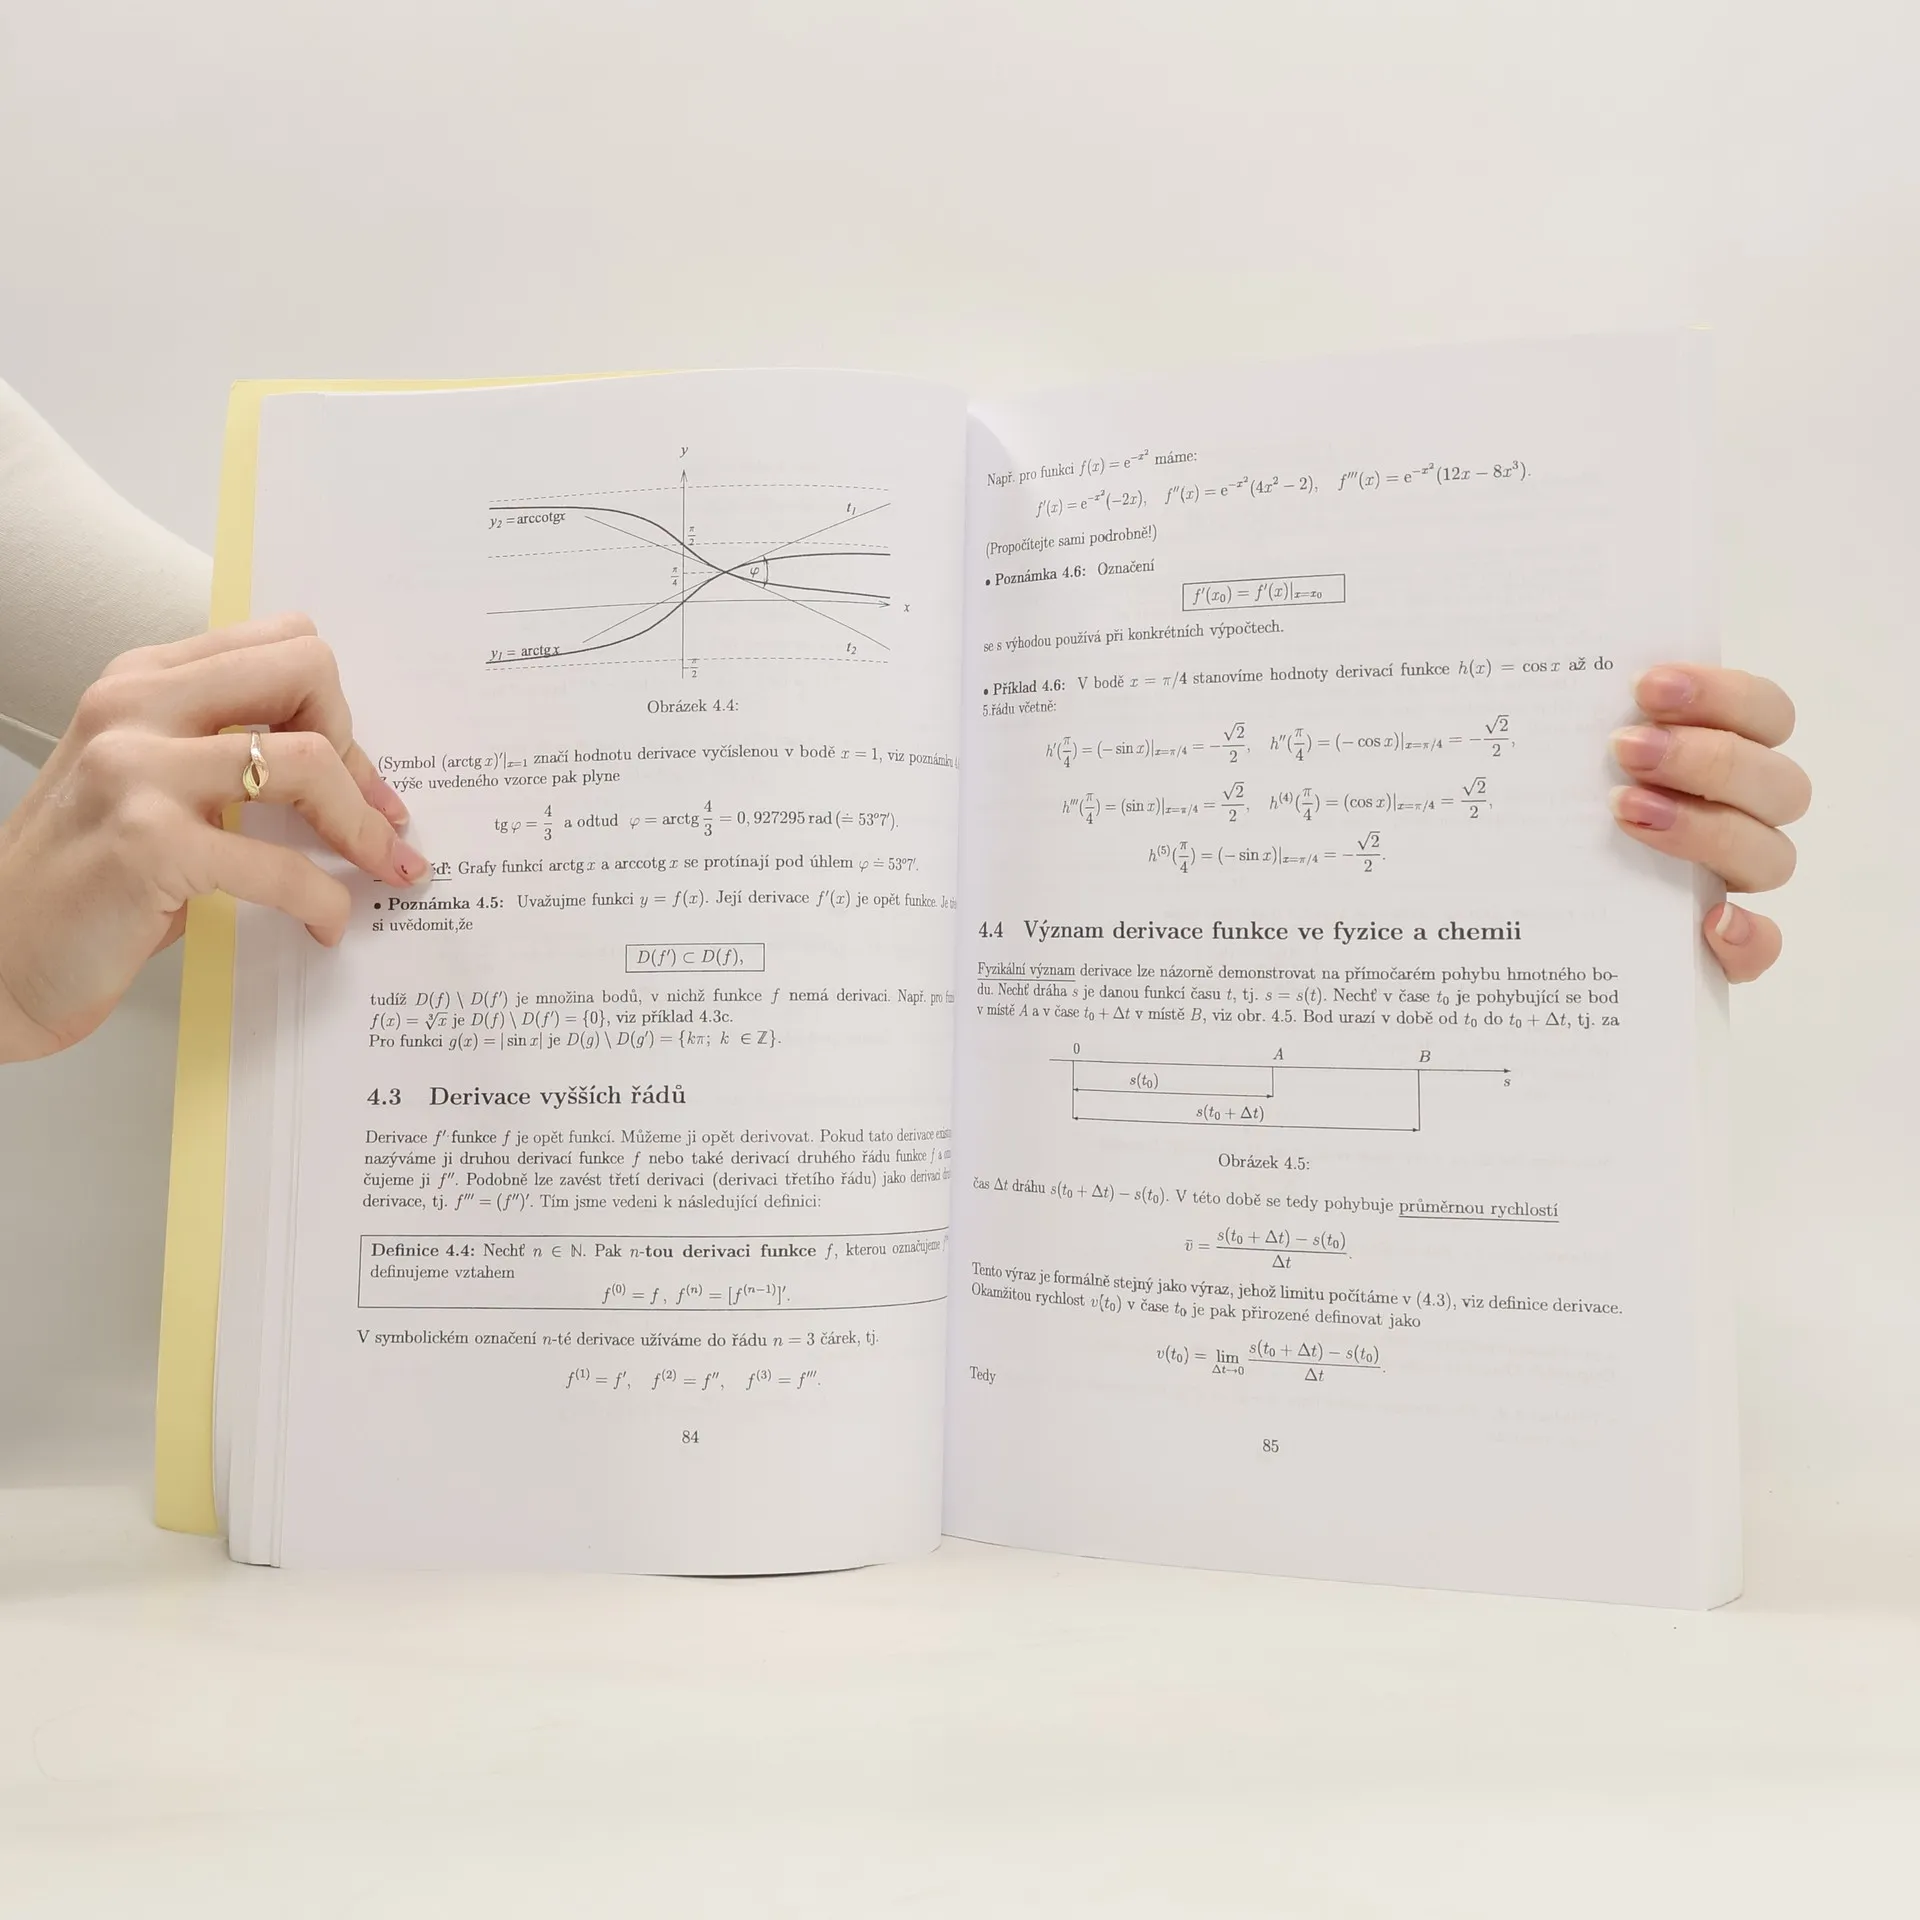 y
y₂ = arccotgx
t₁
π/2
π/4
φ
x
y₁ = arctgx
t₂
-π/2
Obrázek 4.4:
(Symbol (arctg x)′|ₓ₌₁ značí hodnotu derivace vyčíslenou v bodě x = 1, viz poznámku
výše uvedeného vzorce pak plyne
tg φ = 4/3 a odtud φ = arctg 4/3 = 0,927295 rad (≐ 53°7′).
Grafy funkcí arctg x a arccotg x se protínají pod úhlem φ ≐ 53°7′.
• Poznámka 4.5: Uvažujme funkci y = f(x). Její derivace f′(x) je opět funkce. Je
si uvědomit,že
D(f′) ⊂ D(f),
tudíž D(f) \ D(f′) je množina bodů, v nichž funkce f nemá derivaci. Např. pro
f(x) = ∛x je D(f) \ D(f′) = {0}, viz příklad 4.3c.
Pro funkci g(x) = | sin x| je D(g) \ D(g′) = {kπ; k ∈ ℤ}.
4.3 Derivace vyšších řádů
Derivace f′ funkce f je opět funkcí. Můžeme ji opět derivovat. Pokud tato derivace
nazýváme ji druhou derivací funkce f nebo také derivací druhého řádu funkce f a
čujeme ji f″. Podobně lze zavést třetí derivaci (derivaci třetího řádu) jako derivaci
derivace, tj. f‴ = (f″)′. Tím jsme vedeni k následující definici:
Definice 4.4: Nechť n ∈ ℕ. Pak n-tou derivaci funkce f, kterou označujeme
definujeme vztahem
f⁽⁰⁾ = f, f⁽ⁿ⁾ = [f⁽ⁿ⁻¹⁾]′.
V symbolickém označení n-té derivace užíváme do řádu n = 3 čárek, tj.
f⁽¹⁾ = f′, f⁽²⁾ = f″, f⁽³⁾ = f‴.
84
Např. pro funkci f(x) = e^(−x²) máme:
f′(x) = e^(−x²)(−2x), f″(x) = e^(−x²)(4x² − 2), f‴(x) = e^(−x²)(12x − 8x³).
(Propočítejte sami podrobně!)
• Poznámka 4.6: Označení
f′(x₀) = f′(x)|ₓ₌ₓ₀
se s výhodou používá při konkrétních výpočtech.
• Příklad 4.6: V bodě x = π/4 stanovíme hodnoty derivací funkce h(x) = cos x až do
5.řádu včetně:
h′(π/4) = (− sin x)|ₓ₌π/4 = −√2/2, h″(π/4) = (− cos x)|ₓ₌π/4 = −√2/2,
h‴(π/4) = (sin x)|ₓ₌π/4 = √2/2, h⁽⁴⁾(π/4) = (cos x)|ₓ₌π/4 = √2/2,
h⁽⁵⁾(π/4) = (− sin x)|ₓ₌π/4 = −√2/2.
4.4 Význam derivace funkce ve fyzice a chemii
Fyzikální význam derivace lze názorně demonstrovat na přímočarém pohybu hmotného bo-
du. Nechť dráha s je danou funkcí času t, tj. s = s(t). Nechť v čase t₀ je pohybující se bod
v místě A a v čase t₀ + Δt v místě B, viz obr. 4.5. Bod urazí v době od t₀ do t₀ + Δt, tj. za
0 A B
s
s(t₀)
s(t₀ + Δt)
Obrázek 4.5:
čas Δt dráhu s(t₀ + Δt) − s(t₀). V této době se tedy pohybuje průměrnou rychlostí
v̄ = (s(t₀ + Δt) − s(t₀))/Δt.
Tento výraz je formálně stejný jako výraz, jehož limitu počítáme v (4.3), viz definice derivace.
Okamžitou rychlost v(t₀) v čase t₀ je pak přirozené definovat jako
v(t₀) = lim Δt→0 (s(t₀ + Δt) − s(t₀))/Δt.
Tedy
85